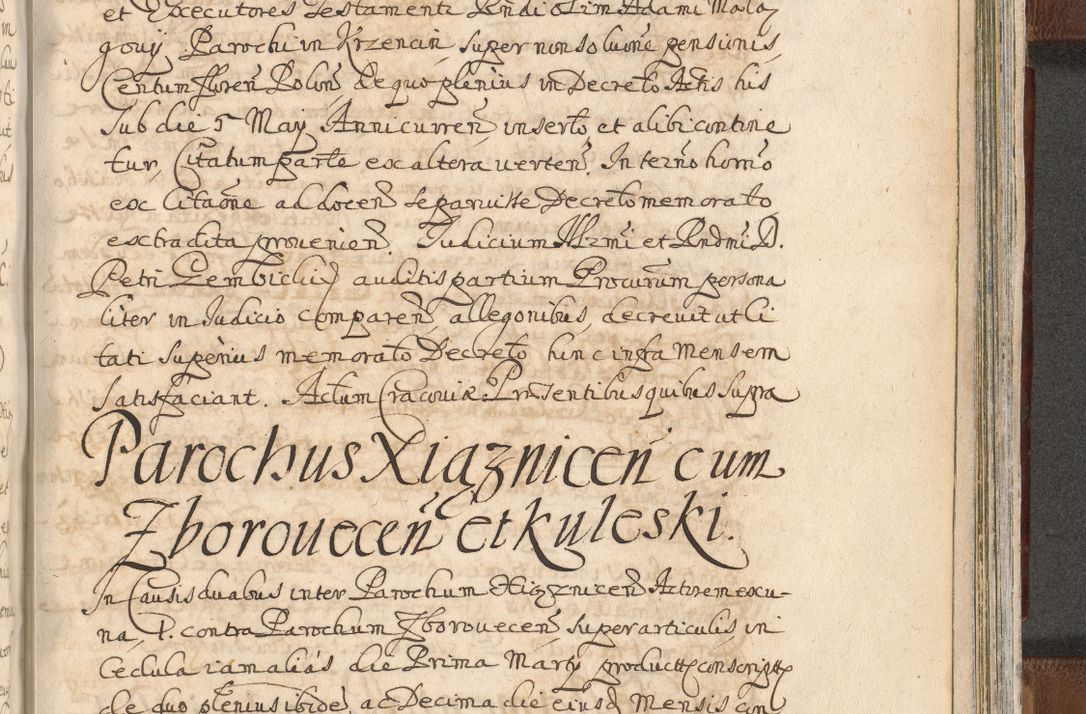 et Executores Testamenti Rndi Olim Adami Mala
gouÿ Parochi in Krzencin super non soluone pensionis
Centum floren Polon de quo plenius in Decreto Actis his
sub die 5 May Anni curren inserto et alibi contine
tur, Citatum parte ex altera uerten. In termo horno
ex Citaone ad docen se paruisse Decreto memorato
extradita prouenien. Judicium Illrmi et Rndmi D.
Petri Gembicki auditis partium Procurum persona
liter in Judicio comparen allegonibus, decreuit ut li
tati superius memorato Decreto hinc infra Mensem
satisfaciant. Actum Cracouiæ. Præsentibus quibus supra
Parochus Xiąznicen cum
Zborouecen et Kuleski.
In Causis duabus inter Parochum Xiąznicen Actorem ex u-
na, P. contra Parochum Zborouecen super articulis in
Cedula iam alias die Prima Marty productt conscriptt
de quo plenius ibide, ac Decima die eiusd Mensis con